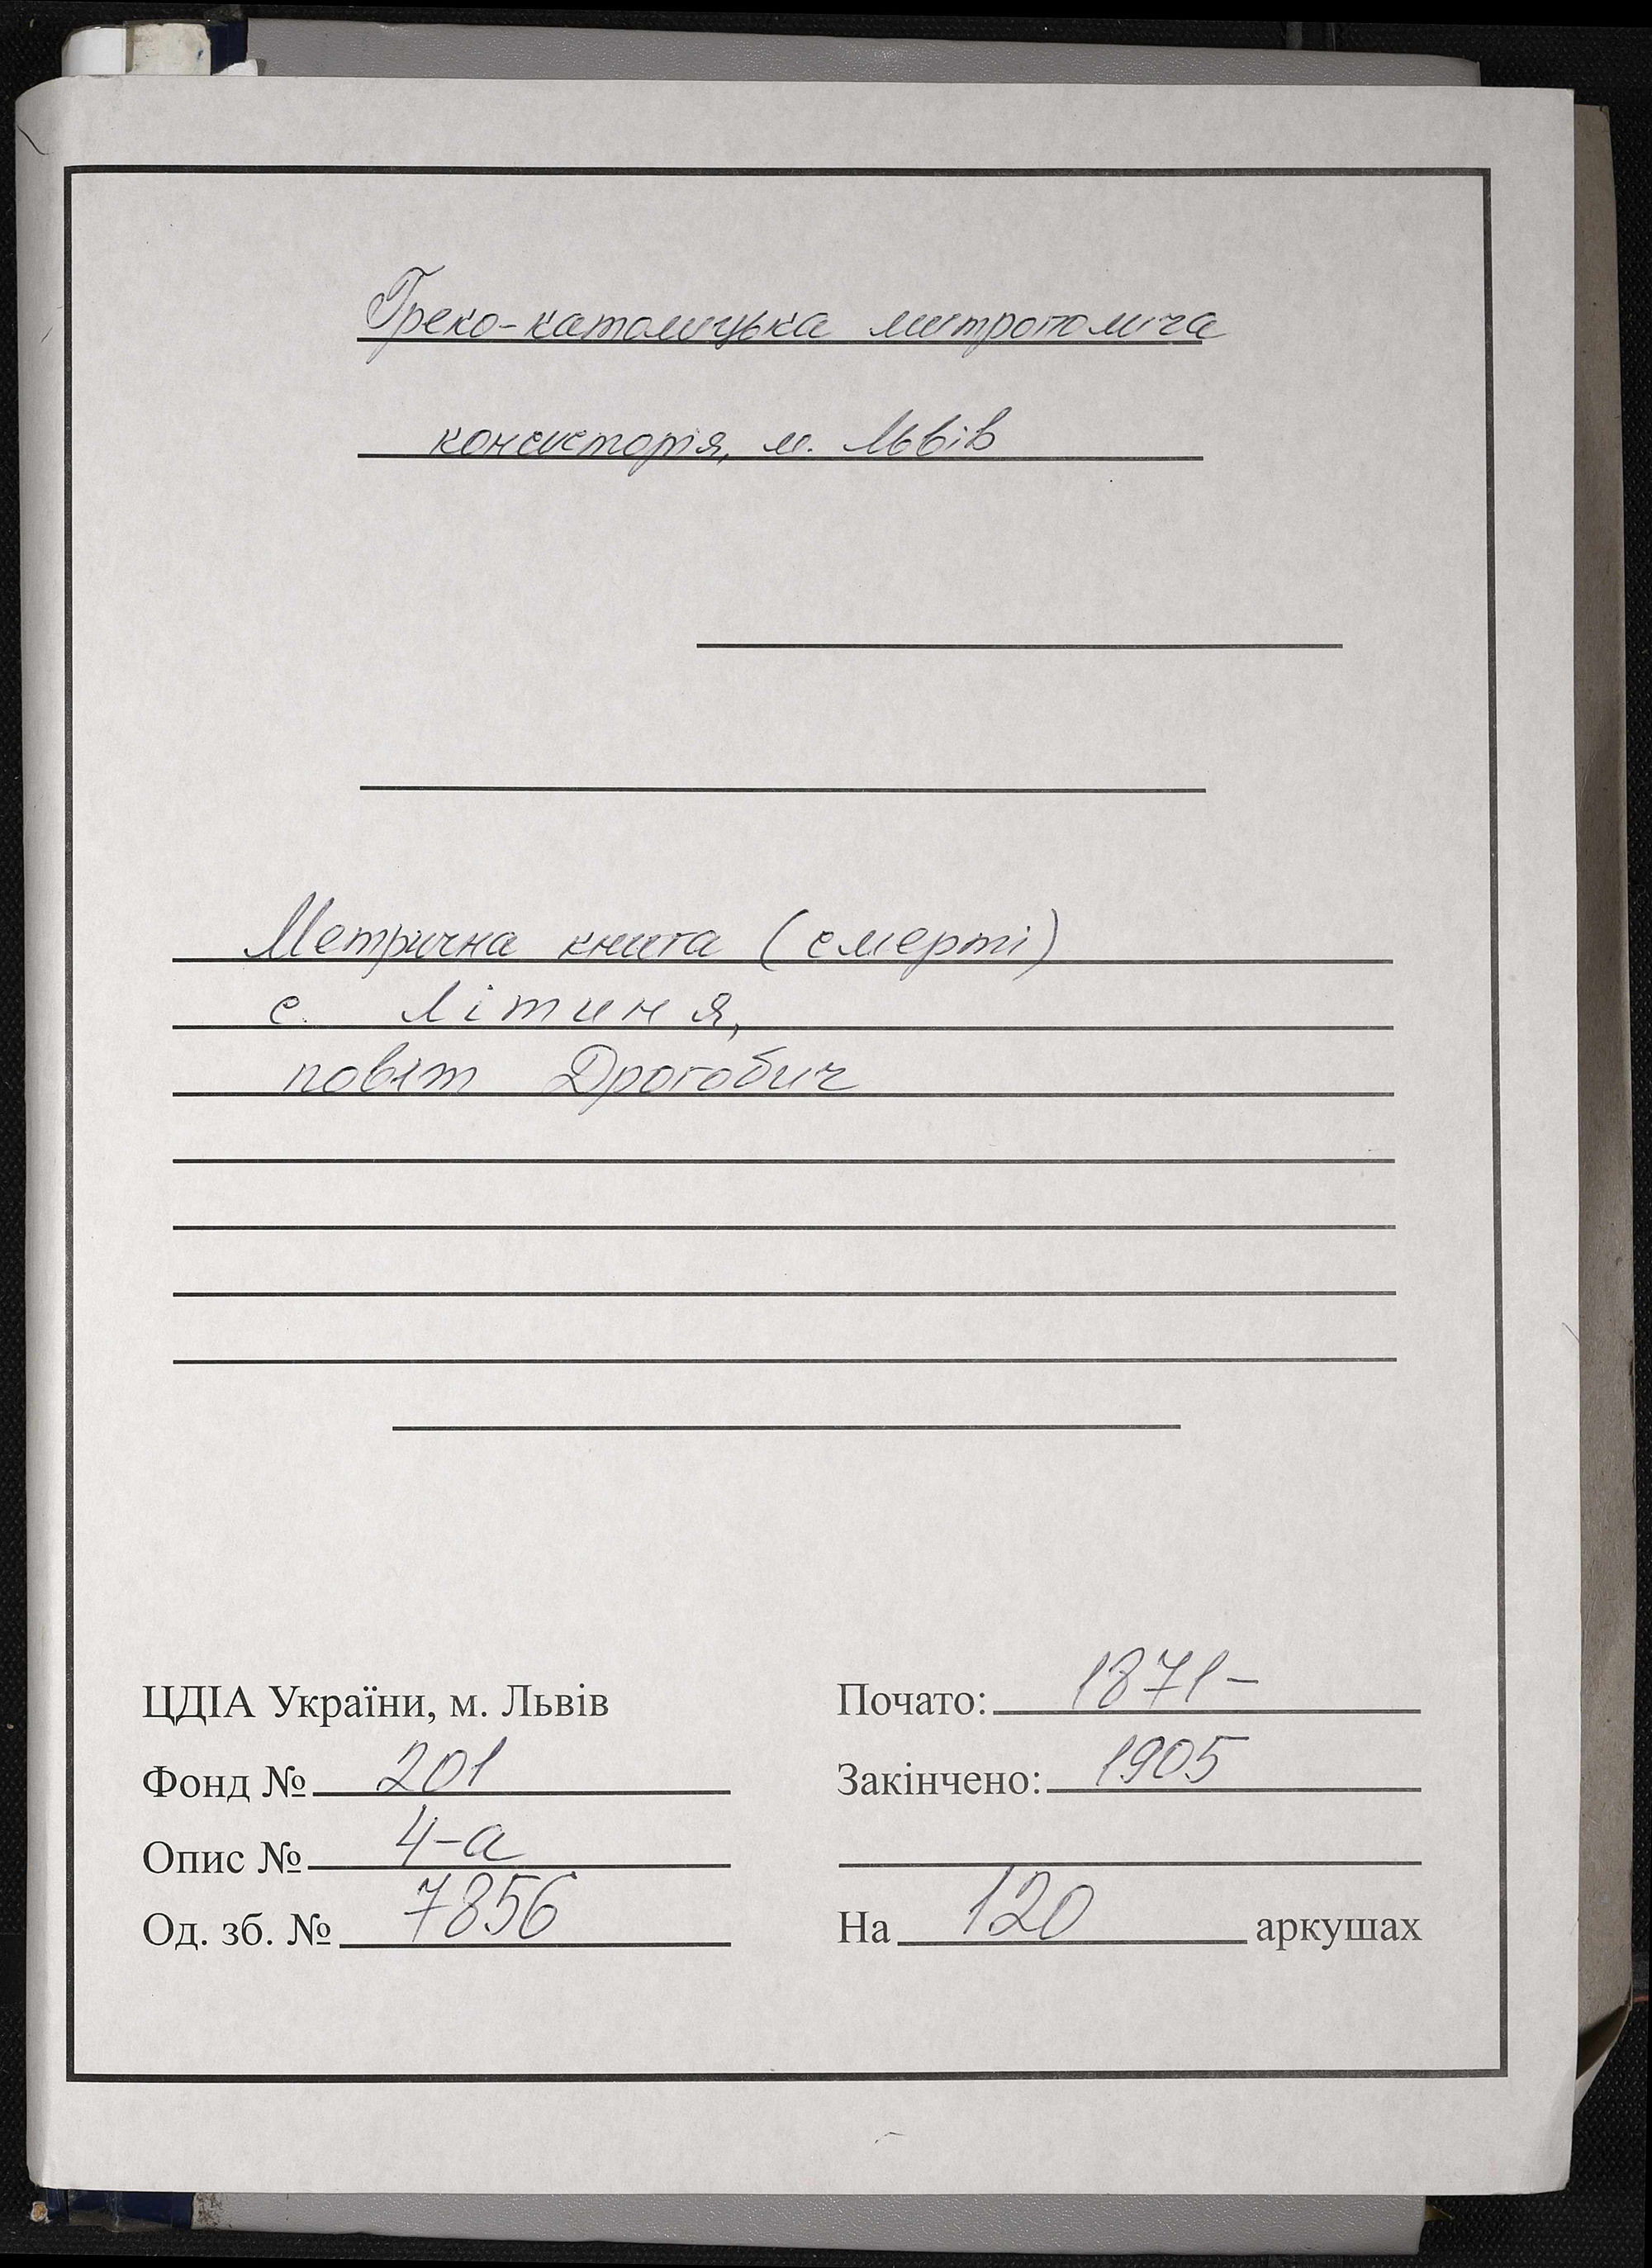 Греко-католицька митрополича
консисторія, м. Львів
Метрична книга (смерті)
с. Літиня,
повіт Дрогобич
ЦДІА України, м. Львів
Фонд № 201
Опис № 4-а
Од. зб. № 7856
Почато: 1871-
Закінчено: 1905
На 120 аркушах